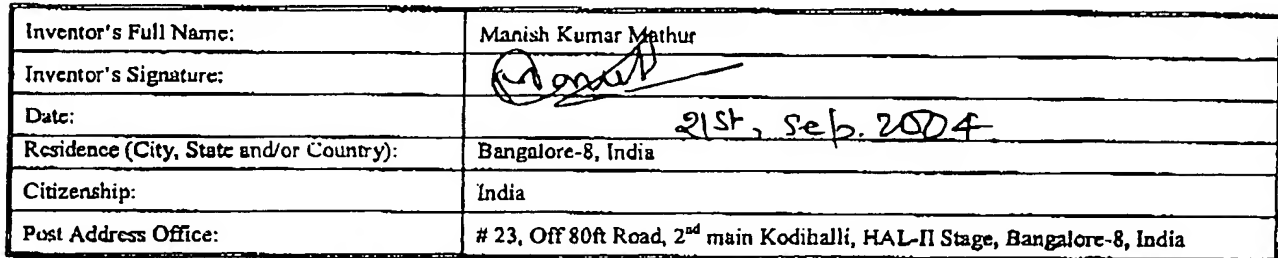 Inventor's Full Name: Manish Kumar Mathur
Inventor's Signature: Manish
Date: 21st, Sep. 2004
Residence (City, State and/or Country): Bangalore-8, India
Citizenship: India
Post Address Office: # 23, Off 80ft Road, 2nd main Kodihalli, HAL-II Stage, Bangalore-8, India